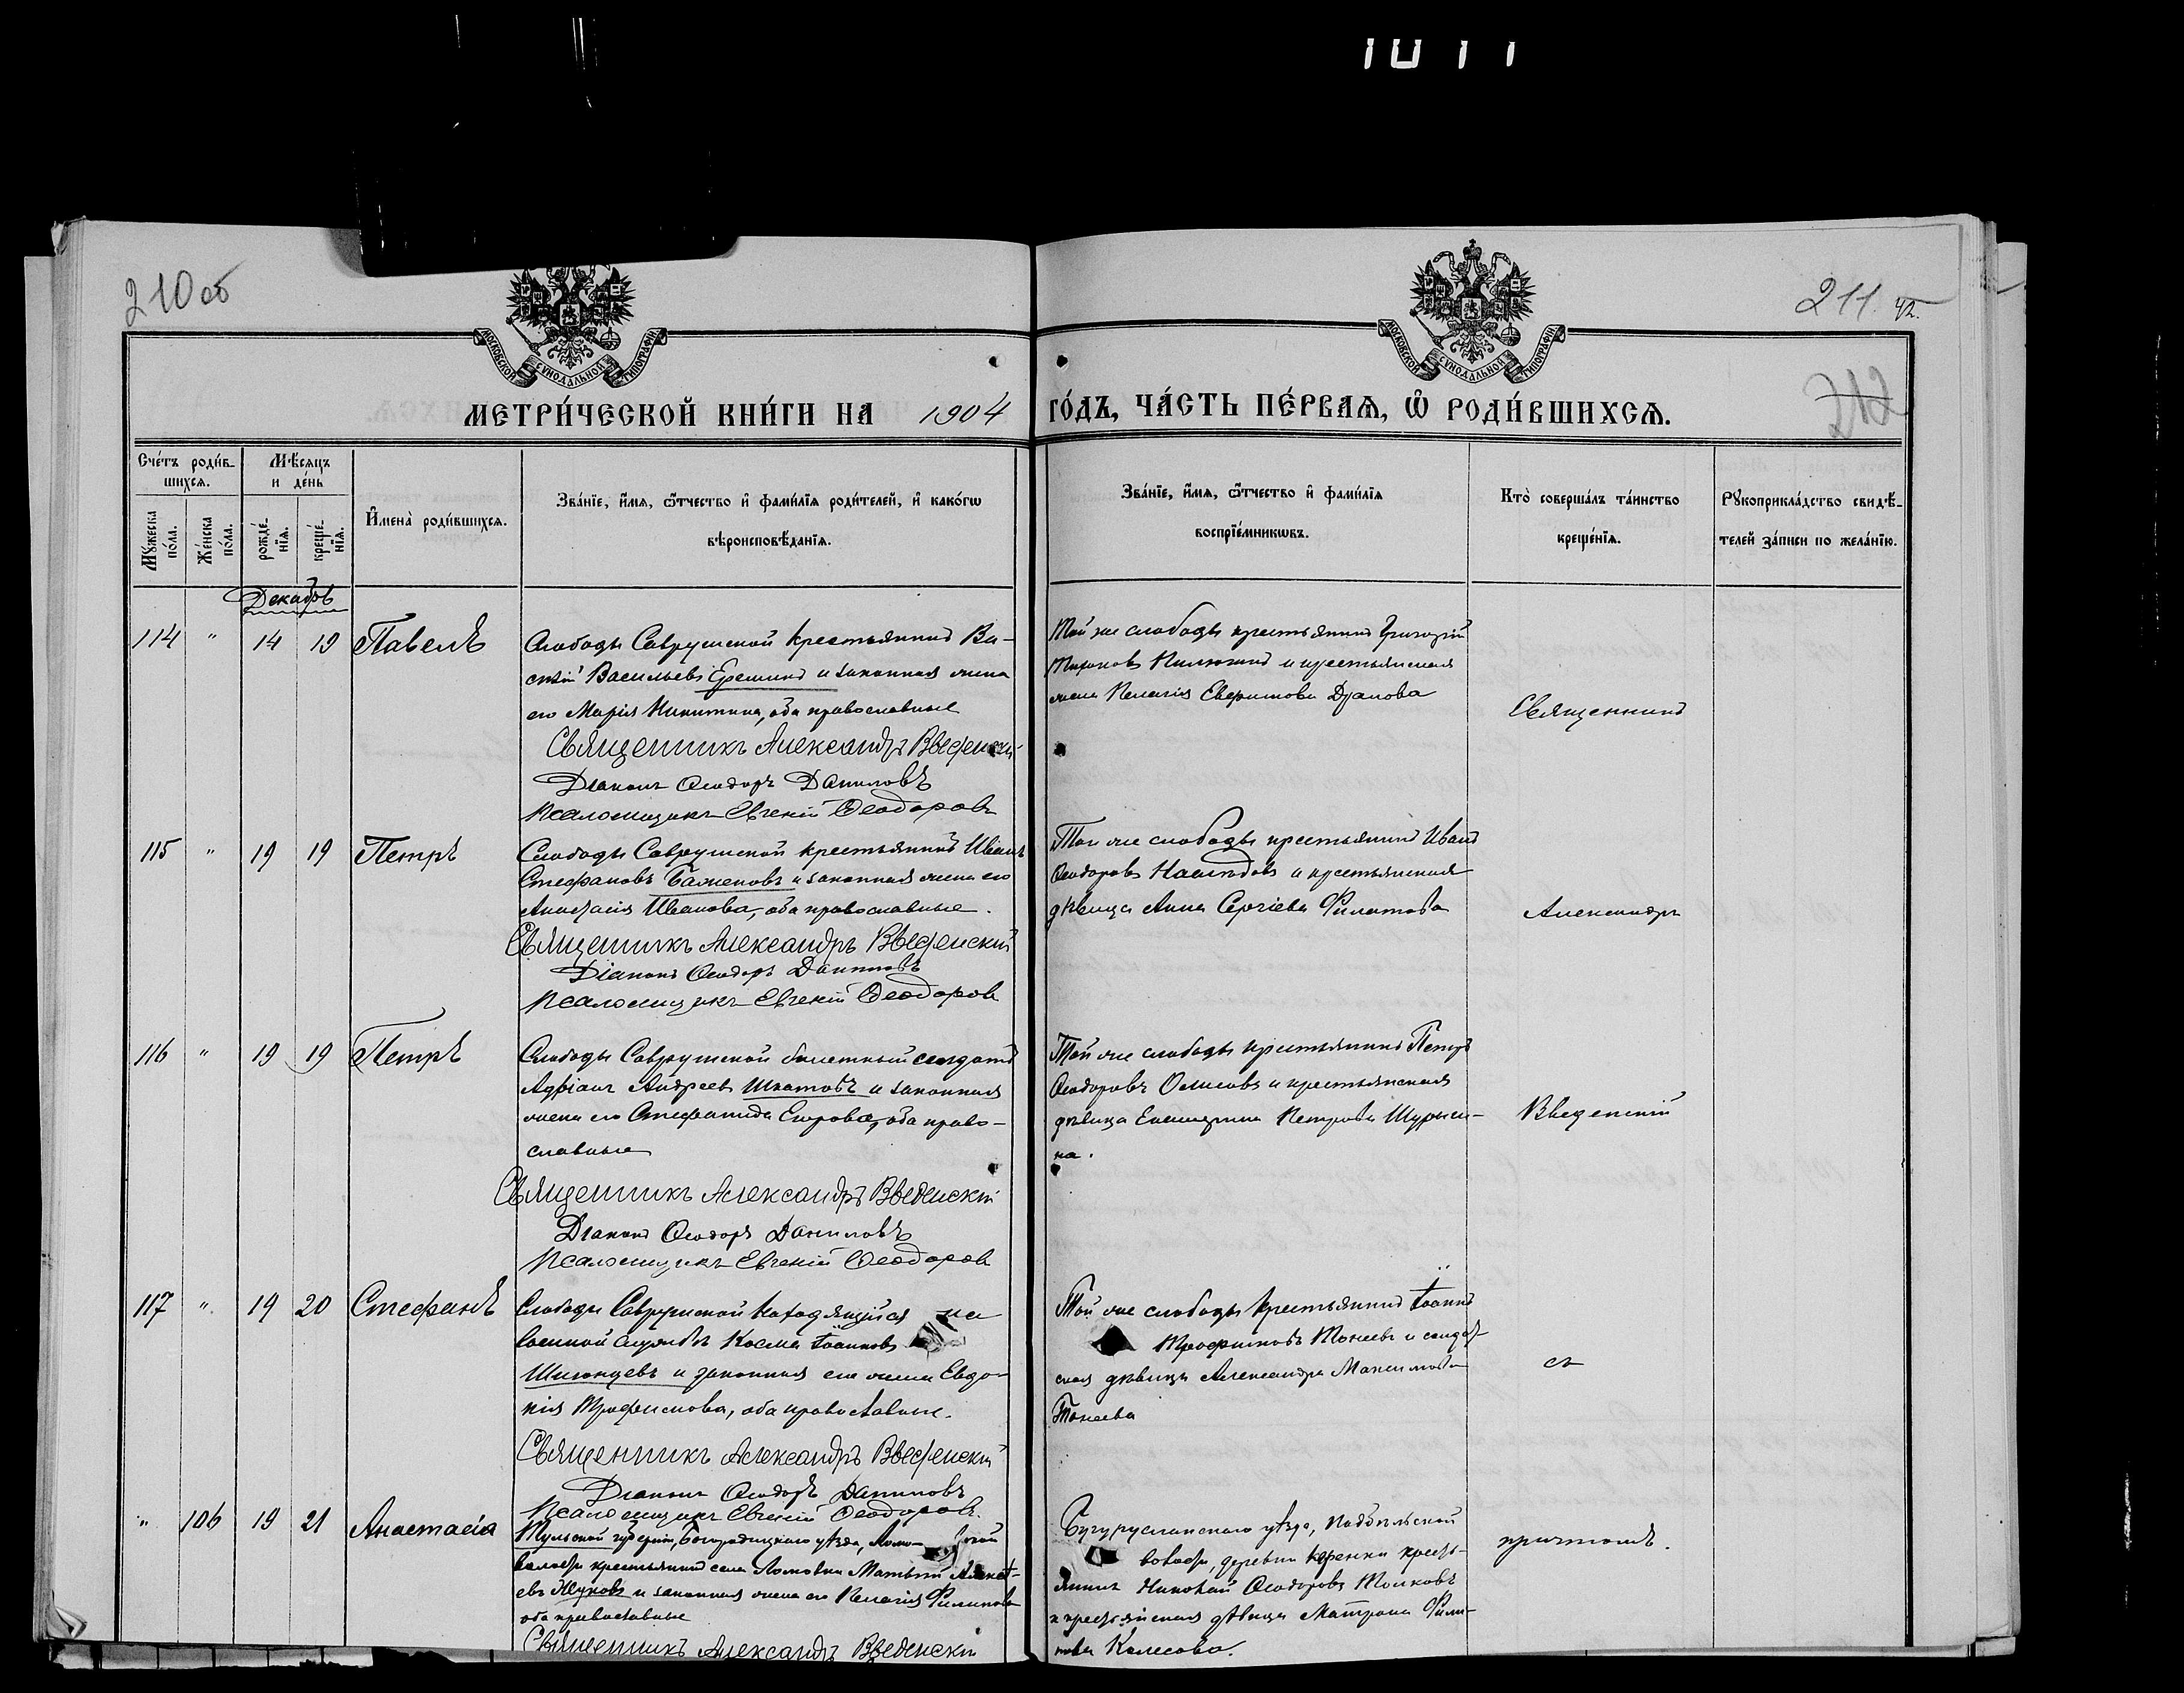 1011
210 об
211. 42.
212
МОСКОВСКОЙ СѴНОДАЛЬНОЙ ТИПОГРАФІИ
МОСКОВСКОЙ СѴНОДАЛЬНОЙ ТИПОГРАФІИ
МЕТРИ́ЧЕСКОЙ КНИ́ГИ НА 1904 ГО́ДЪ, ЧА́СТЬ ПЕ́РВАѦ, Ѡ҆ РОДИ́ВШИХСѦ.
Сче́тъ роди́в-
шихся.
Мѣ́сяцъ
и де́нь
Мꙋ́жеска по́ла.
Же́нска по́ла.
рожде́-нїя.
креще́-нїя.
И҆мена̀ роди́вшихся.
Зва́нїе, и҆́мя, ѻ҆́тчество и҆ фами́лїя роди́телей, и҆ како́гѡ
вѣроисповѣ́данїя.
Зва́нїе, и҆́мя, ѻ҆́тчество и҆ фами́лїя
воспрїе́мникѡвъ.
Кто̀ соверша́лъ та́инство
креще́нїя.
Рꙋкоприкла́дство свидѣ́-
телей за́писи по жела́нїю.
Декабрь
114 " 14 19 Павелъ
Слободы Саврушской крестьянинъ Ва-
силій Васильевъ Ерешинъ и законная жена
его Марія Никитина, оба православные
Священникъ Александръ Введенскій
Діаконъ Ѳеодоръ Даниловъ
Псаломщикъ Евгеній Ѳеодоровъ
Той же слободы крестьянинъ Григорій
Пилюгинъ и крестьянская
жена Пелагія
Священникъ
115 " 19 19 Петръ
Слободы Саврушской крестьянинъ Иванъ
Стефановъ Баженовъ и законная жена его
Анастасія Иванова, оба православные.
Священникъ Александръ Введенскій
Діаконъ Ѳеодоръ Даниловъ
Псаломщикъ Евгеній Ѳеодоровъ
Той же слободы крестьянинъ Иванъ
Ѳеодоровъ и крестьянская
дѣвица Анна Сергіева Филатова
Александръ
116 " 19 19 Петръ
Слободы Саврушской билетный солдатъ
Адріанъ Андреевъ Шкатовъ и законная
жена его Стефанида Егорова, оба право-
славные
Священникъ Александръ Введенскій
Діаконъ Ѳеодоръ Даниловъ
Псаломщикъ Евгеній Ѳеодоровъ
Той же слободы крестьянинъ Петръ
Ѳеодоровъ и крестьянская
дѣвица Екатерина Петрова
на.
Введенскій
117 " 19 20 Стефанъ
Слободы Саврушской находящійся на
военной службѣ Косма Іоанновъ
и законная его жена Евдо-
кія Трофимова, оба православные.
Священникъ Александръ Введенскій
Діаконъ Ѳеодоръ Даниловъ
Псаломщикъ Евгеній Ѳеодоровъ.
Той же слободы крестьянинъ Іоаннъ
Трофимовъ Тонеевъ и солдат-
ская дѣвица Александра Максимова
Тонеева
съ
" 106 19 21 Анастасія
Тульской губерніи, Богородицкаго уѣзда,
волости крестьянинъ села Ломовки Матвѣй
евъ Жуковъ и законная жена его Пелагія Филипова
оба православные
Священникъ Александръ Введенскій
Бугурусланскаго уѣзда, Подбѣльской
волости, деревни Керенки кресть-
янинъ Николай Ѳеодоровъ Толковъ
и крестьянская дѣвица Матрона Фили-
пова Колесова.
причтомъ.